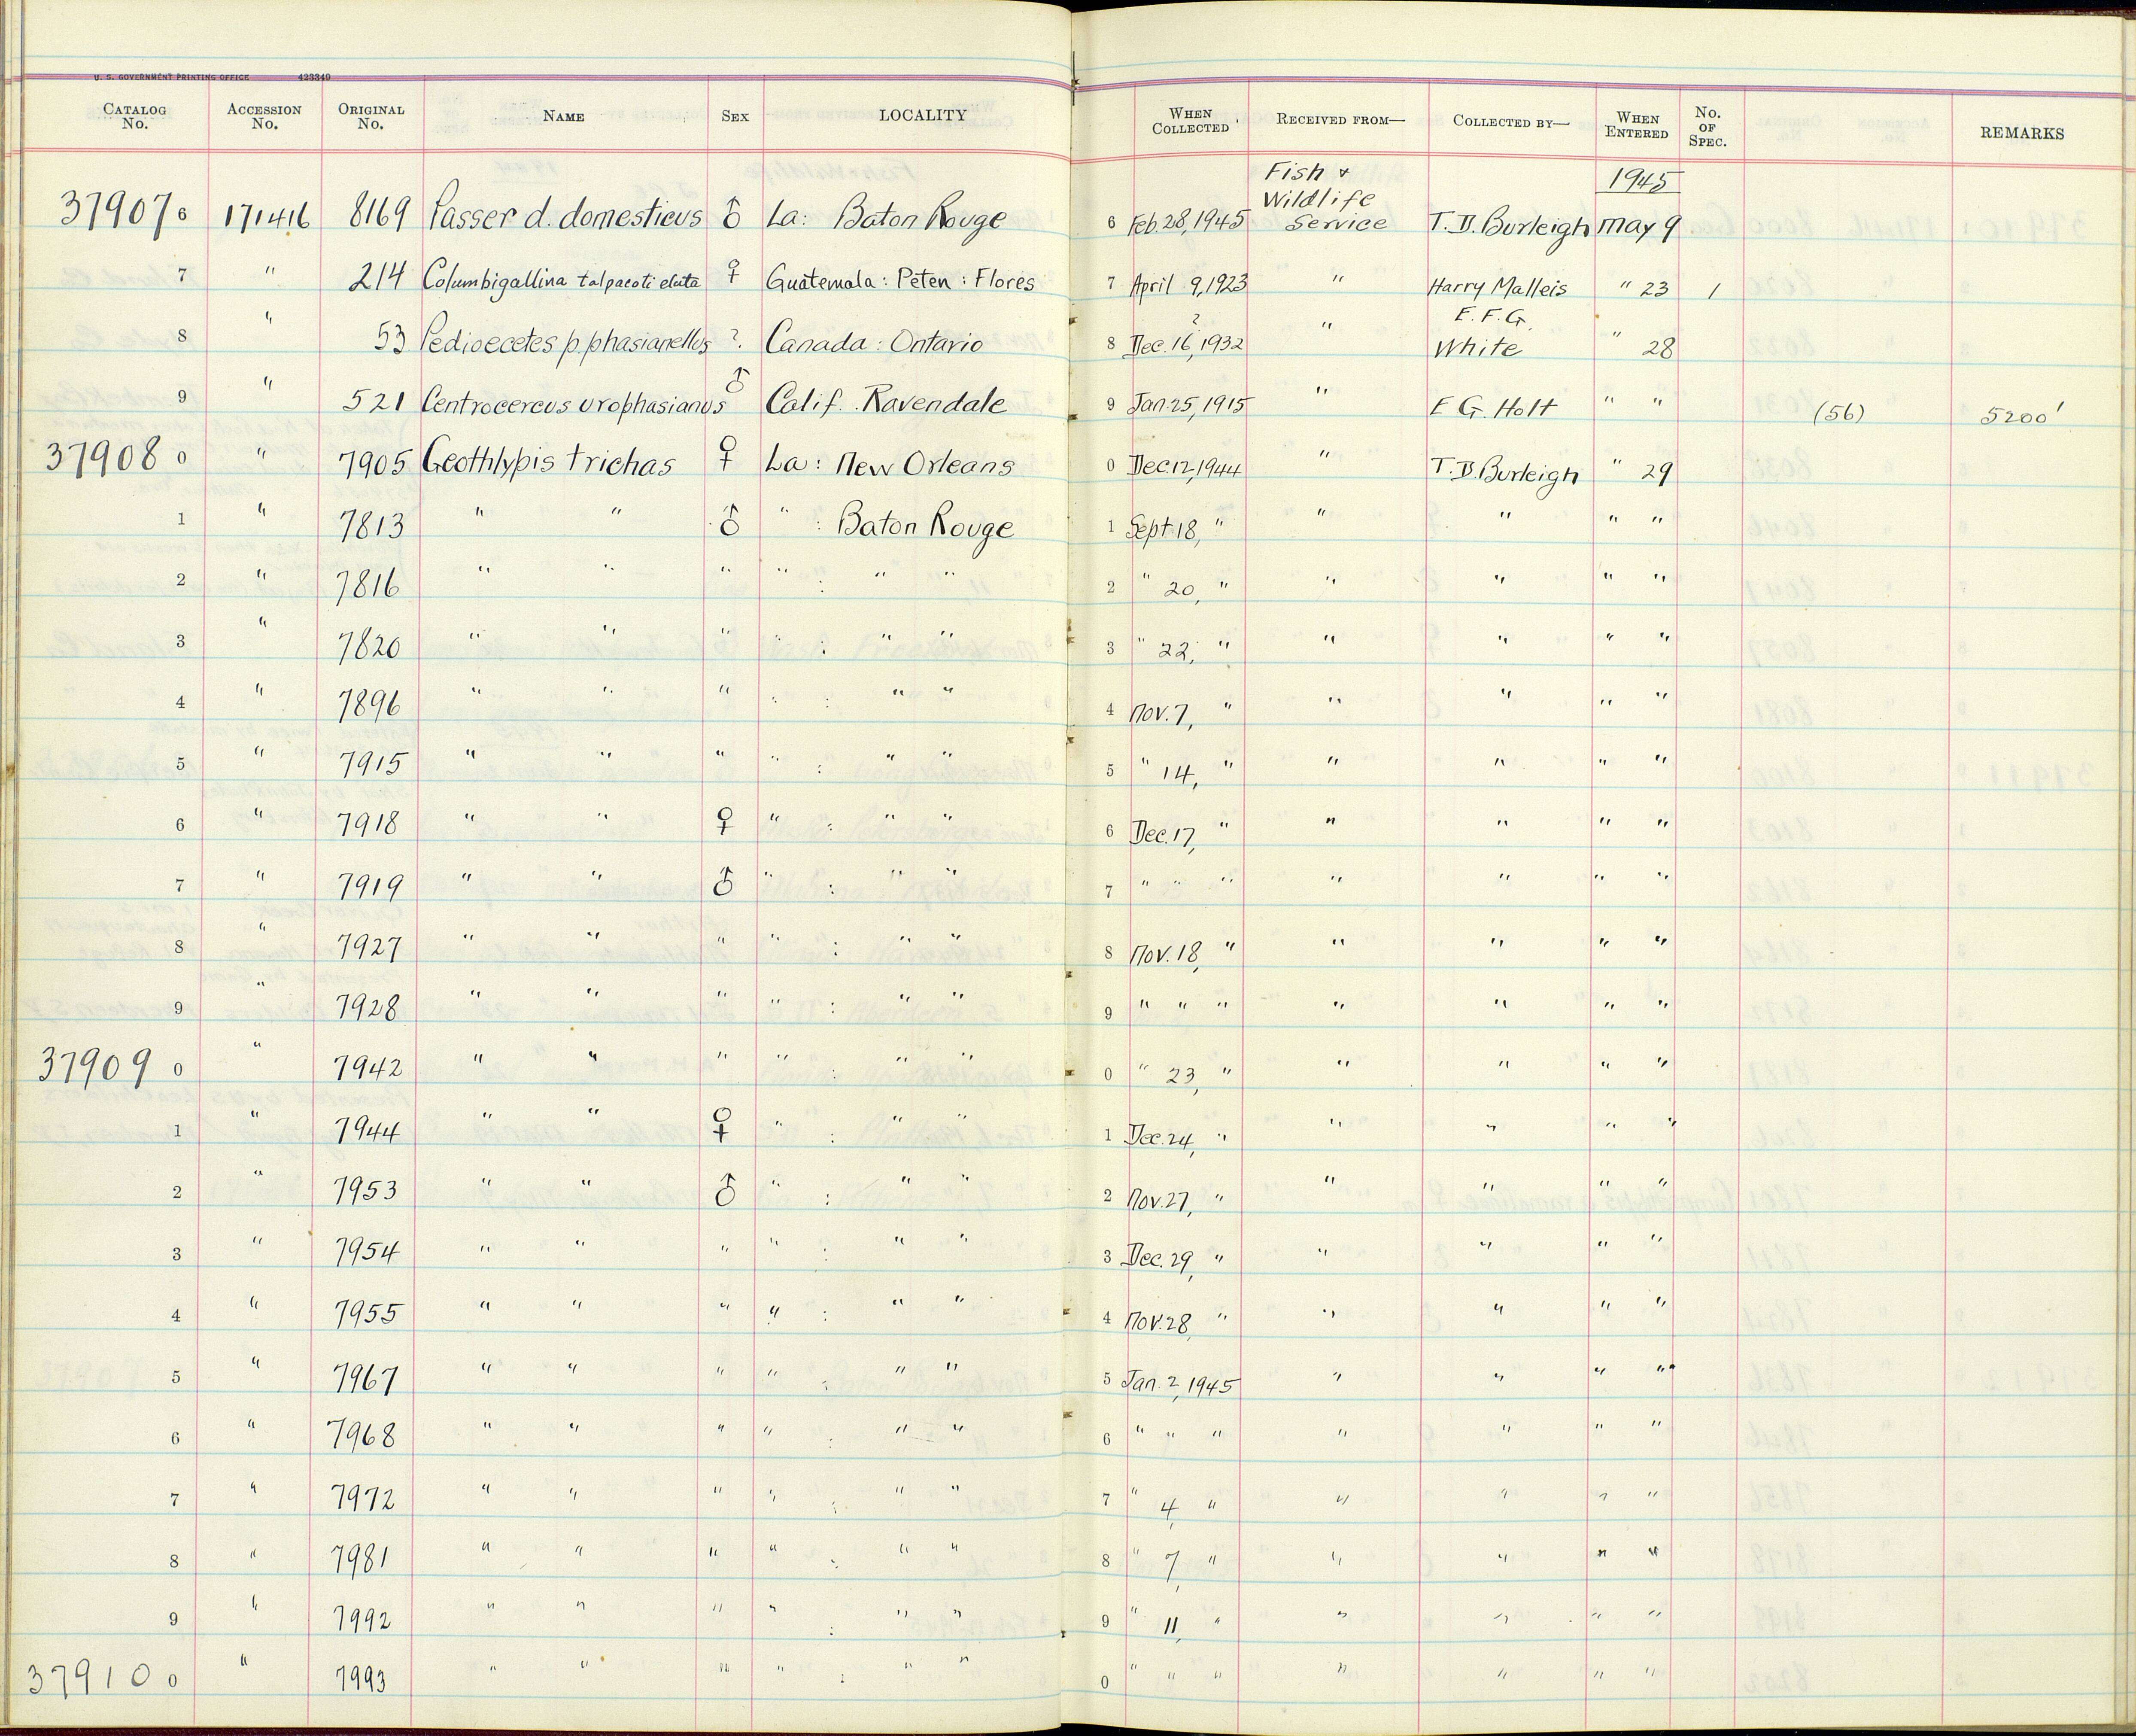 U. S. GOVERNMENT PRINTING OFFICE 423349
CATALOG No. ACCESSION No. ORIGINAL No. NAME SEX LOCALITY WHEN COLLECTED RECEIVED FROM— COLLECTED BY— WHEN ENTERED No. OF SPEC. REMARKS
37907 6 171416 8169 Passer d. domesticus ♂ La: Baton Rouge 6 Feb. 28, 1945 Fish & Wildlife Service T. D. Burleigh 1945 May 9
7 " 214 Columbigallina talpacoti eluta ♀ Guatemala: Peten: Flores 7 April 9, 1923 " Harry Malleis " 23 1
8 " 53 Pedioecetes p. phasianellus ? Canada: Ontario 8 Dec. 16, 1932 ? " E. F. G. White " 28
9 " 521 Centrocercus urophasianus ♂ Calif. Ravendale 9 Jan. 25, 1915 " E G. Holt " " (56) 5200'
37908 0 " 7905 Geothlypis trichas ♀ La: New Orleans 0 Dec. 12, 1944 " T. D. Burleigh " 29
1 " 7813 " " ♂ " : Baton Rouge 1 Sept. 18, " " " " "
2 " 7816 " " " " : " " 2 " 20, " " " " "
3 " 7820 " " " " : " " 3 " 22, " " " " "
4 " 7896 " " " " : " " 4 Nov. 7, " " " " "
5 " 7915 " " " " : " " 5 " 14, " " " " "
6 " 7918 " " ♀ " : " " 6 Dec. 17, " " " " "
7 " 7919 " " ♂ " : " " 7 " " " " " " "
8 " 7927 " " " " : " " 8 Nov. 18, " " " " "
9 " 7928 " " " " : " " 9 " " " " " " "
37909 0 " 7942 " " " " : " " 0 " 23, " " " " "
1 " 7944 " " ♀ " : " " 1 Dec. 24, " " " " "
2 " 7953 " " ♂ " : " " 2 Nov. 27, " " " " "
3 " 7954 " " " " : " " 3 Dec. 29, " " " " "
4 " 7955 " " " " : " " 4 Nov. 28, " " " " "
5 " 7967 " " " " : " " 5 Jan. 2, 1945 " " " "
6 " 7968 " " " " : " " 6 " " " " " " "
7 " 7972 " " " " : " " 7 " 4, " " " " "
8 " 7981 " " " " : " " 8 " 7, " " " " "
9 " 7992 " " " " : " " 9 " 11, " " " " "
37910 0 " 7993 " " " " : " " 0 " " " " " " "